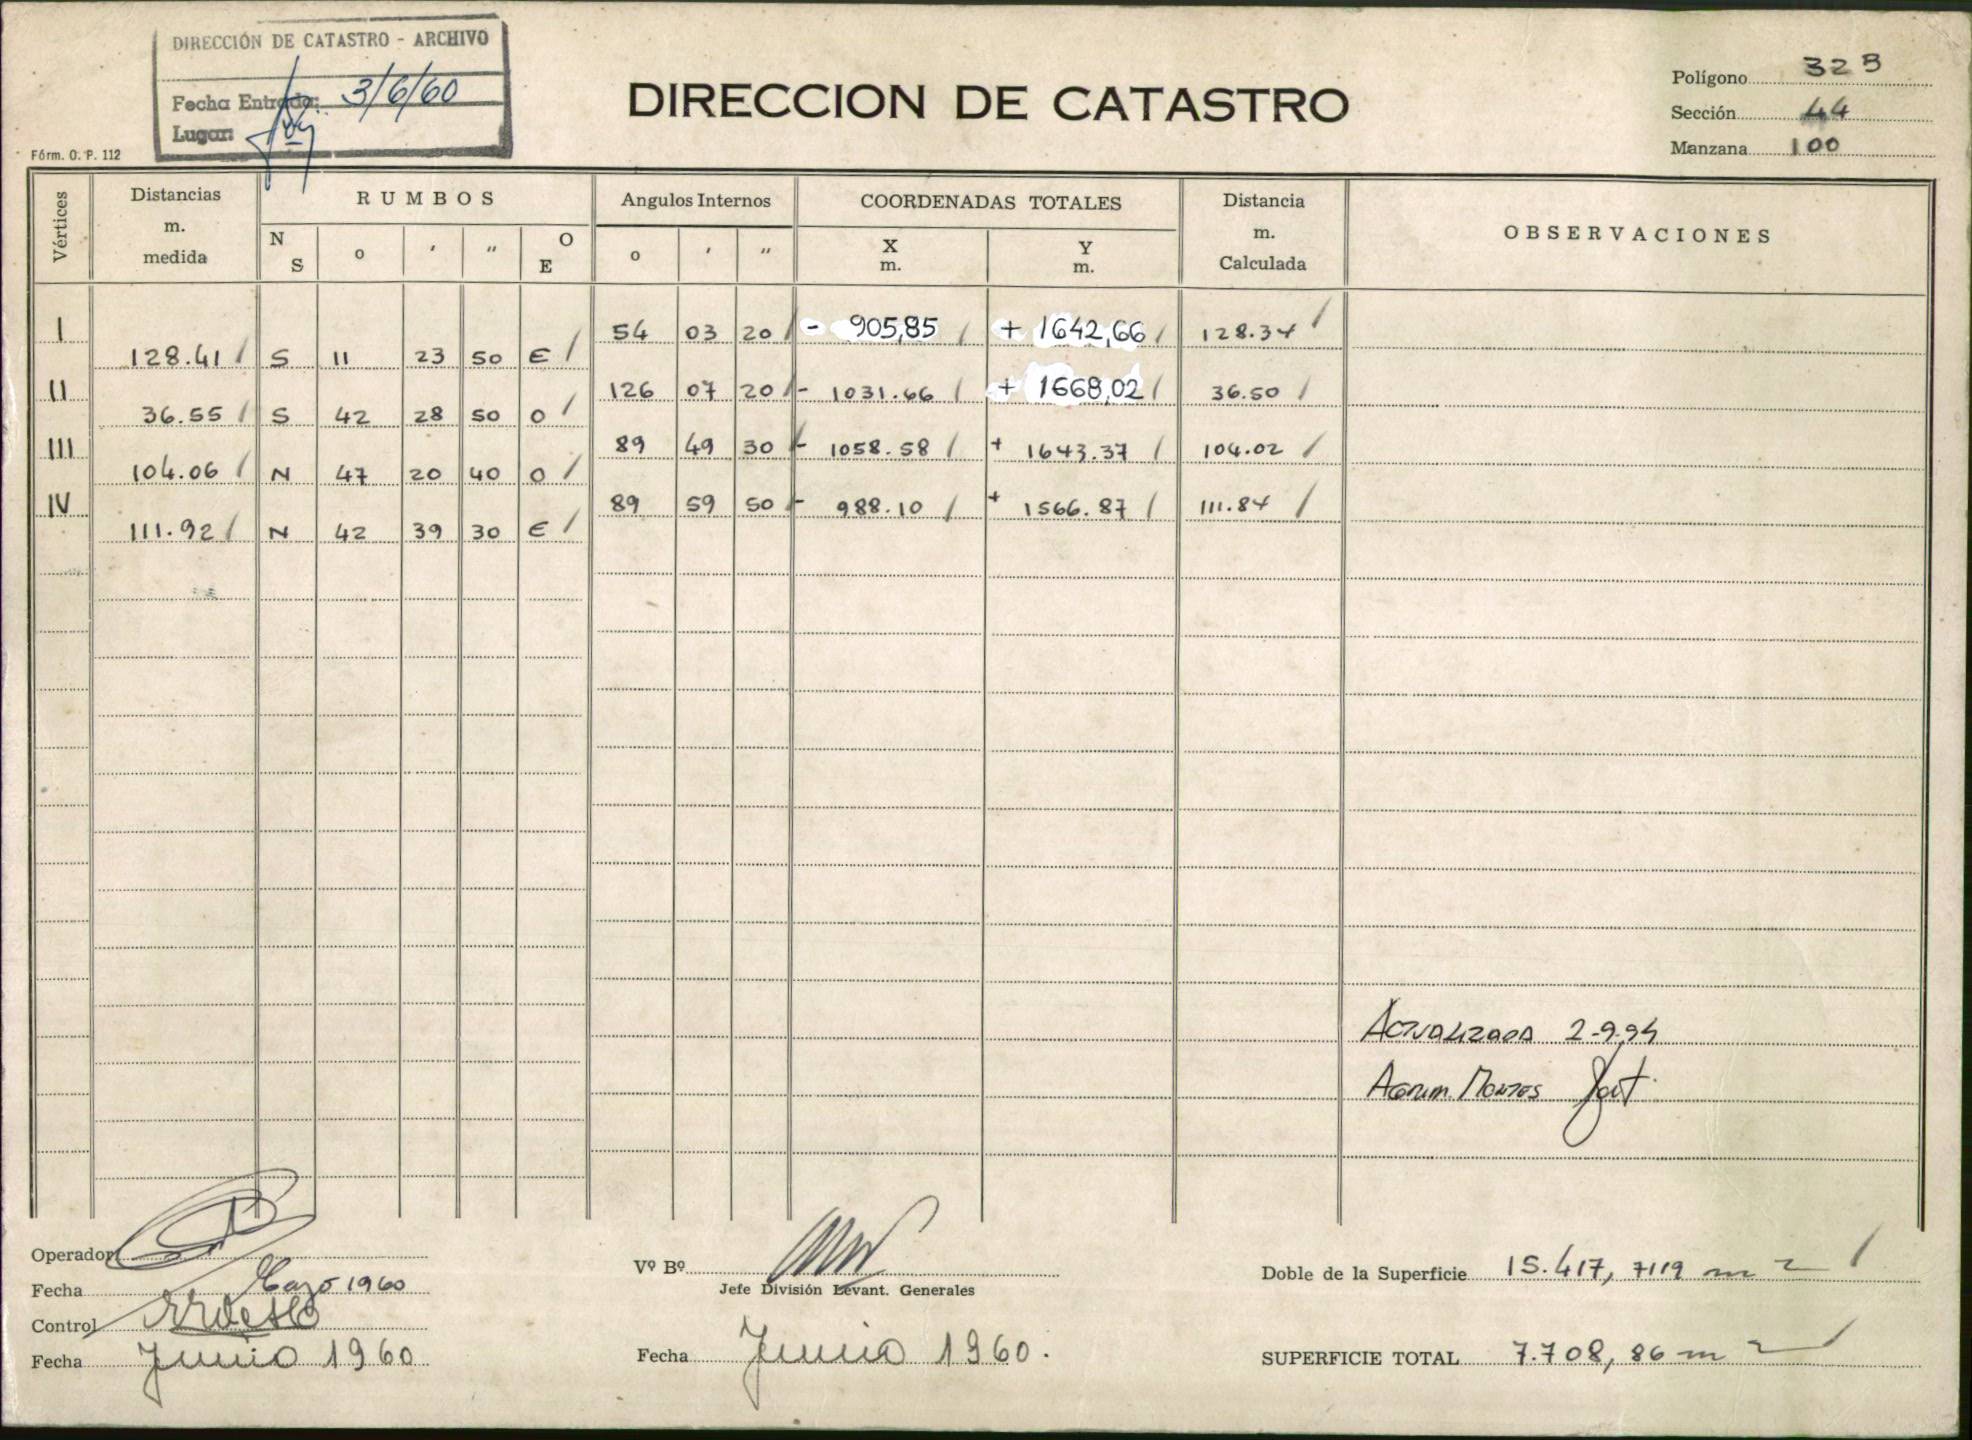 DIRECCIÓN DE CATASTRO - ARCHIVO
Fecha Entrada: 3/6/60
Lugar:
Fórm. O. P. 112
DIRECCION DE CATASTRO
Polígono 32 B
Sección 44
Manzana 100
Vértices Distancias m. medida RUMBOS N S o ′ ″ O E Angulos Internos o ′ ″ COORDENADAS TOTALES X m. Y m. Distancia m. Calculada OBSERVACIONES
I 54 03 20 - 905,85 + 1642,66 128.34
128.41 S 11 23 50 E
II 126 07 20 - 1031.66 + 1668,02 36.50
36.55 S 42 28 50 O
III 89 49 30 - 1058.58 + 1643.37 104.02
104.06 N 47 20 40 O
IV 89 59 50 - 988.10 + 1566.87 111.84
111.92 N 42 39 30 E
ACTUALIZADA 2-9-94
AGRIM. MONTES
Operador
Fecha 1960
Control
Fecha Junio 1960
Vº Bº
Jefe División Levant. Generales
Fecha Junio 1960.
Doble de la Superficie 15.417, 7119 m2
SUPERFICIE TOTAL 7.708, 86 m2